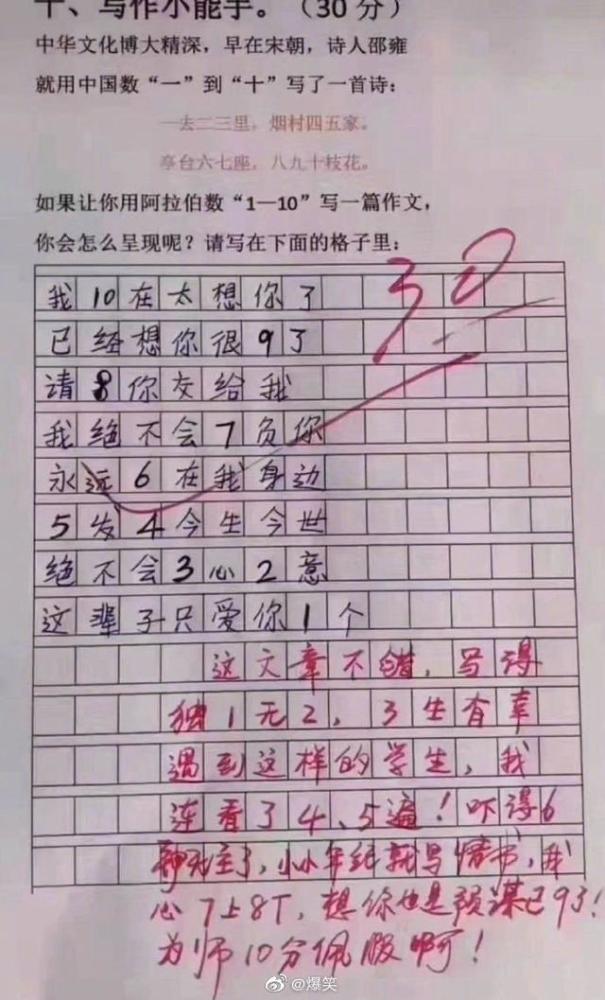 十、写作小能手。（30 分）
中华文化博大精深，早在宋朝，诗人邵雍
就用中国数“一”到“十”写了一首诗：
一去二三里，烟村四五家。
亭台六七座，八九十枝花。
如果让你用阿拉伯数“1—10”写一篇作文，
你会怎么呈现呢？请写在下面的格子里：
30
我10在太想你了
已经想你很9了
请8你交给我
我绝不会7负你
永远6在我身边
5发4今生今世
绝不会3心2意
这辈子只爱你1个
这文章不错，写得
独1无2，3生有幸
遇到这样的学生，我
连看了4、5遍！吓得6
神无主了，小小年纪就写情书，我
心7上8下，想你也是预谋已9了！
为师10分佩服啊！
@爆笑